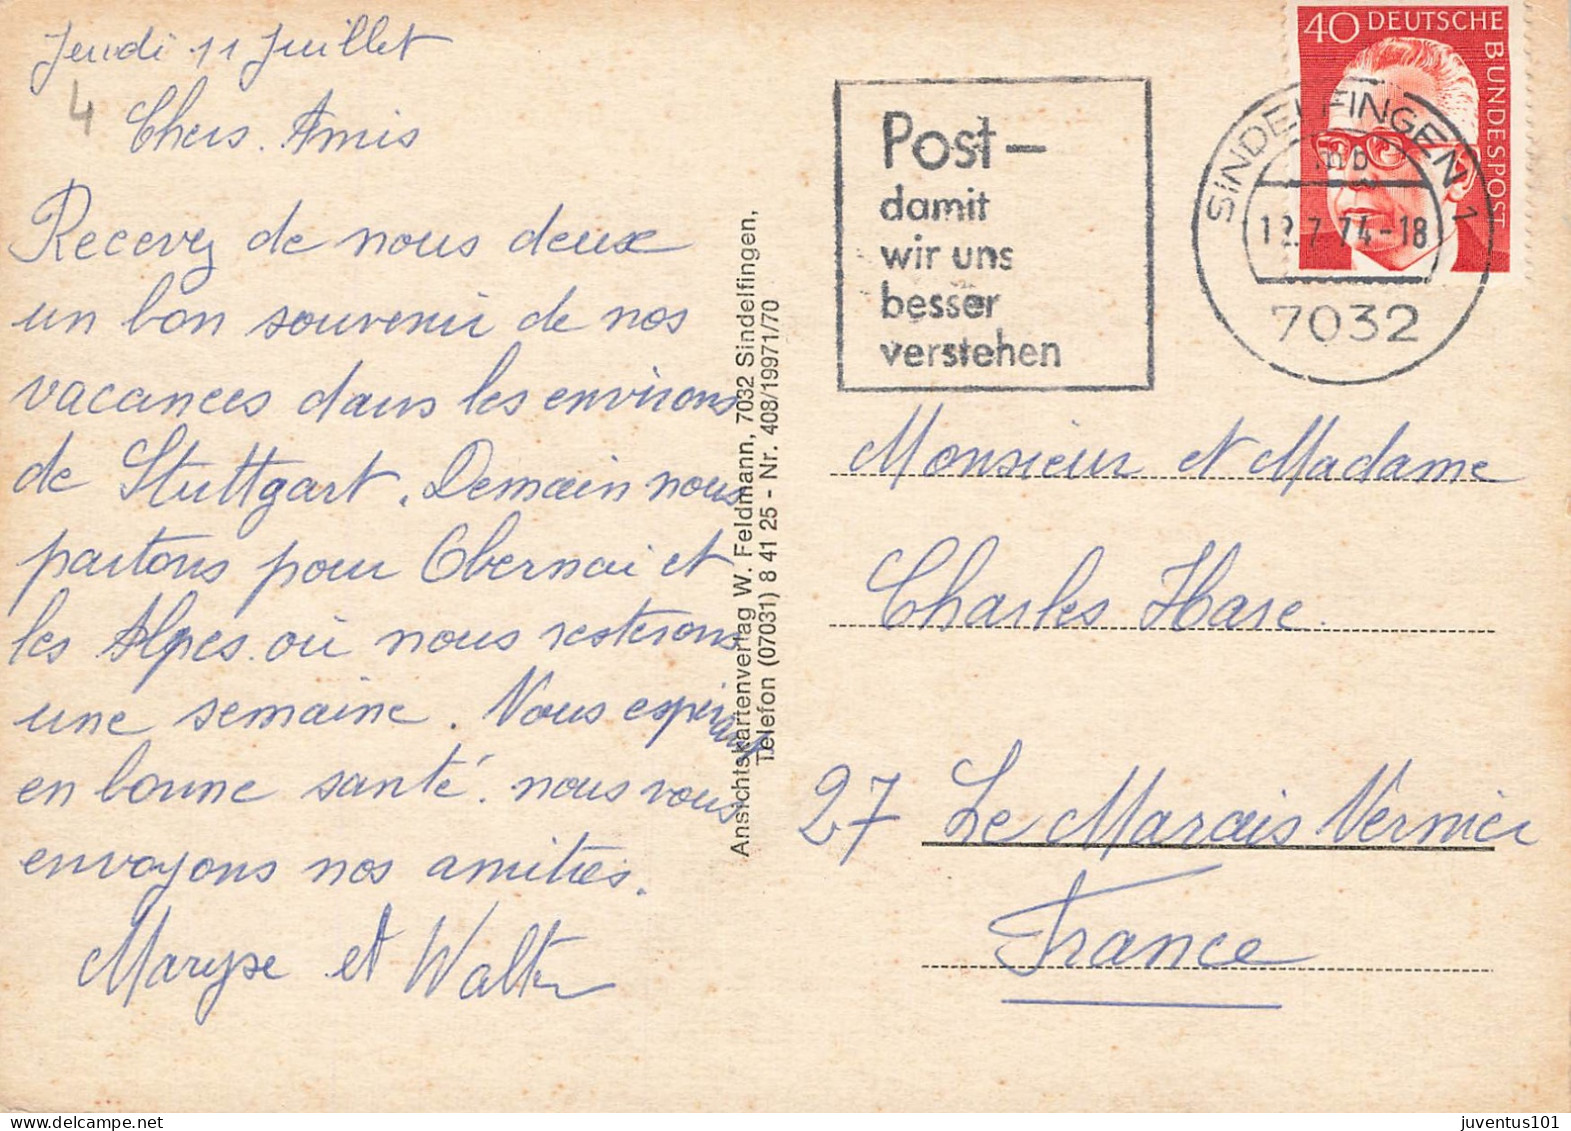 Jeudi 11 Juillet
4
Chers Amis
Recevez de nous deux
un bon souvenir de nos
vacances dans les environs
de Stuttgart. Demain nous
partons pour Obernai et
les Alpes où nous resterons
une semaine. Vous espérant
en bonne santé. nous vous
envoyons nos amitiés.
Maryse et Walter
Ansichtskartenverlag W. Feldmann, 7032 Sindelfingen,
Telefon (07031) 8 41 25 - Nr. 408/19971/70
Post-
damit
wir uns
besser
verstehen
SINDELFINGEN 1
mb
12.7.74-18
7032
40 DEUTSCHE BUNDESPOST
Monsieur et Madame
Charles Hare.
27 Le Marais Vernier
France
juventus101